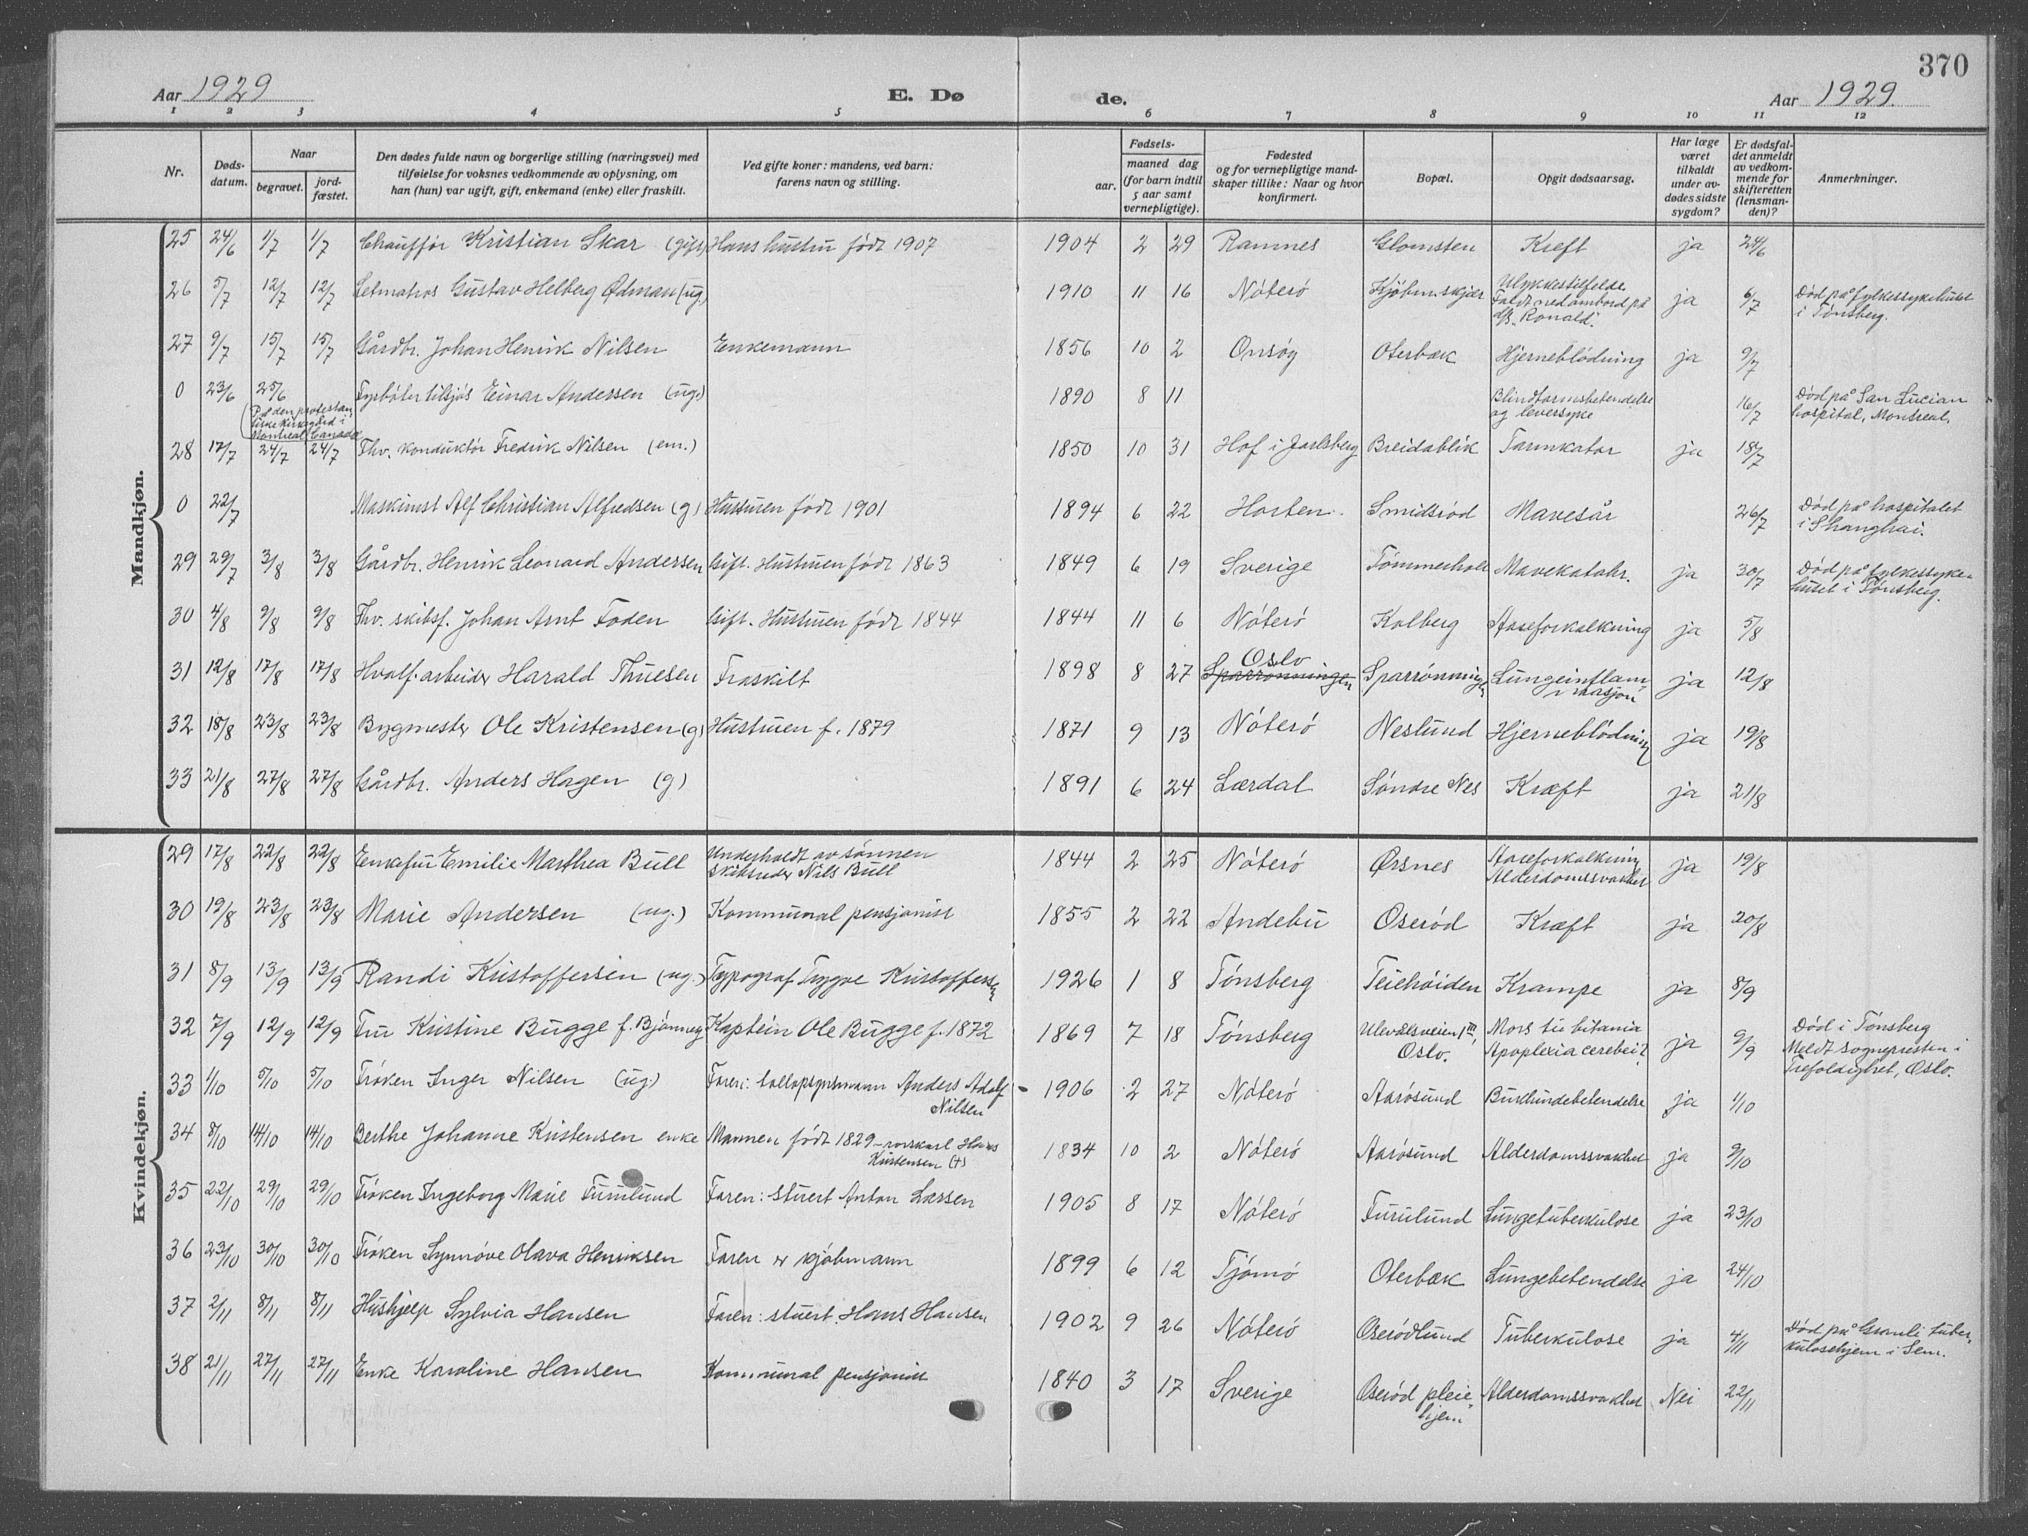 370
Aar 1929
E. Dø
de.
Aar 1929.
1 2 3 4 5 6 7 8 9 10 11 12
Nr.
Døds-
datum.
Naar
begravet.
jord-
fæstet.
Den dødes fulde navn og borgerlige stilling (næringsvei) med
tilføielse for voksnes vedkommende av oplysning, om
han (hun) var ugift, gift, enkemand (enke) eller fraskilt.
Ved gifte koner: mandens, ved barn:
farens navn og stilling.
Fødsels-
aar.
maaned dag
(for barn indtil
5 aar samt
vernepligtige).
Fødested
og for vernepligtige mand-
skaper tillike: Naar og hvor
konfirmert.
Bopæl.
Opgit dødsaarsag.
Har læge
været
tilkaldt
under av-
dødes sidste
sygdom?
Er dødsfal-
det anmeldt
av vedkom-
mende for
skifteretten
(lensman-
den)?
Anmerkninger.
Mandkjøn.
25 24/6 1/7 1/7 Chauffør Kristian Skar (gift) Hans hustru født 1907 1904 2 29 Ramnes Glomsten Kreft ja 24/6
26 5/7 12/7 12/7 Letmatros Gustav Helberg Ødman (ug) 1910 11 16 Nøterø Kjøbmskjær Ulykkestilfelde
Faldt ned ombord på
d/s "Ronald". ja 6/7 Død på fylkessykehuset
i Tønsberg.
27 9/7 15/7 15/7 Gårdbr. Johan Henrik Nilsen Enkemann 1856 10 2 Onsøy Oterbæk Hjerneblødning ja 9/7
0 23/6 25/6 Fyrbøter tilsjøs Einar Andersen (ug.) 1890 8 11 Blindtarmsbetendelse
og leversyke 16/7 Død på San Lucian
hospital, Montreal.
På den protestan-
tiske kirkegård i
Montreal Canada
28 17/7 24/7 24/7 Thv. konduktør Fredrik Nilsen (em.) 1850 10 31 Hof i Jarlsberg Breidablik Tarmkatar ja 18/7
0 22/7 Maskinist Alf Christian Alfredsen (g) Hustruen født 1901 1894 6 22 Horten. Smidsrød Mavesår 26/7 Død på hospitalet
i Shanghai.
29 29/7 3/8 3/8 Gårdbr. Henrik Leonard Andersen Gift. Hustruen født 1863 1849 6 19 Sverige Tømmerholt Mavekatahr. ja 30/7 Død på fylkessyke-
huset i Tønsberg.
30 4/8 9/8 9/8 Thv. skibsf. Johan Arnt Foden Gift. Hustruen født 1844 1844 11 6 Nøterø Kolberg Aareforkalkning ja 5/8
31 12/8 17/8 17/8 Hvalf. arbeider Harald Thuesen Fraskilt 1898 8 27 Oslo
Sparrønningen Sparrønningen Lungeinflam-
masjon ja 12/8
32 18/8 23/8 23/8 Bygmester Ole Kristensen (g) Hustruen f. 1879 1871 9 13 Nøterø Neslund Hjerneblødning ja 19/8
33 21/8 27/8 27/8 Gårdbr. Anders Hagen (g) 1891 6 24 Lærdal Søndre Nes Kræft ja 21/8
Kvindekjøn.
29 17/8 22/8 22/8 Enkefru Emilie Marthea Bull Underholdt av sønnen
skibsreder Nils Bull 1844 2 25 Nøterø Ørsnes Aareforkalkning
Alderdomssvakhet ja 19/8
30 19/8 23/8 23/8 Marie Andersen (ug.) Kommunal pensjonist 1855 2 22 Andebu Oserød Kræft ja 20/8
31 8/9 13/9 13/9 Randi Kristoffersen (ug.) Typograf Trygve Kristoffersen 1926 1 8 Tønsberg Teiehøiden Krampe ja 8/9
32 7/9 12/9 12/9 Fru Kristine Bugge f. Bjønnes Kaptein Ole Bugge f. 1872 1869 7 18 Tønsberg Ulevålsveien 1 III,
Oslo. Mors subitania
Apoplexia cerebri? ja 9/9 Død i Tønsberg
Meldt sognepresten i
Trefoldighet, Oslo.
33 1/10 5/10 5/10 Frøken Inger Nilsen (ug.) Faren: tollopsynsmann Anders Adolf
Nilsen - 1906 2 27 Nøterø Aarøsund Bukhindebetendelse ja 1/10
34 8/10 14/10 14/10 Berthe Johanne Kristensen enke Mannen født 1829 - murskarl Hans
Kristensen (+) 1834 10 2 Nøterø Aarøsund Alderdomssvakhet ja 9/10
35 22/10 29/10 29/10 Frøken Ingeborg Marie Furulund Faren: stuert Anton Larsen 1905 8 17 Nøterø Furulund Lungetuberkulose ja 23/10
36 23/10 30/10 30/10 Frøken Synnøve Olava Henriksen Faren er kjøbmann 1899 6 12 Tjømø Oterbæk Lungebetendelse ja 24/10
37 2/11 8/11 8/11 Hushjelp Sylvia Hansen Faren: stuert Hans Hansen 1902 9 26 Nøterø Oserødlund Tuberkulose ja 4/11 Død på Gramli tuber-
kulosehjem i Sem.
38 21/11 27/11 27/11 Enke Karoline Hansen Kommunal pensjonist 1840 3 17 Sverige Oserød pleie-
hjem Alderdomssvakhet Nei 22/11